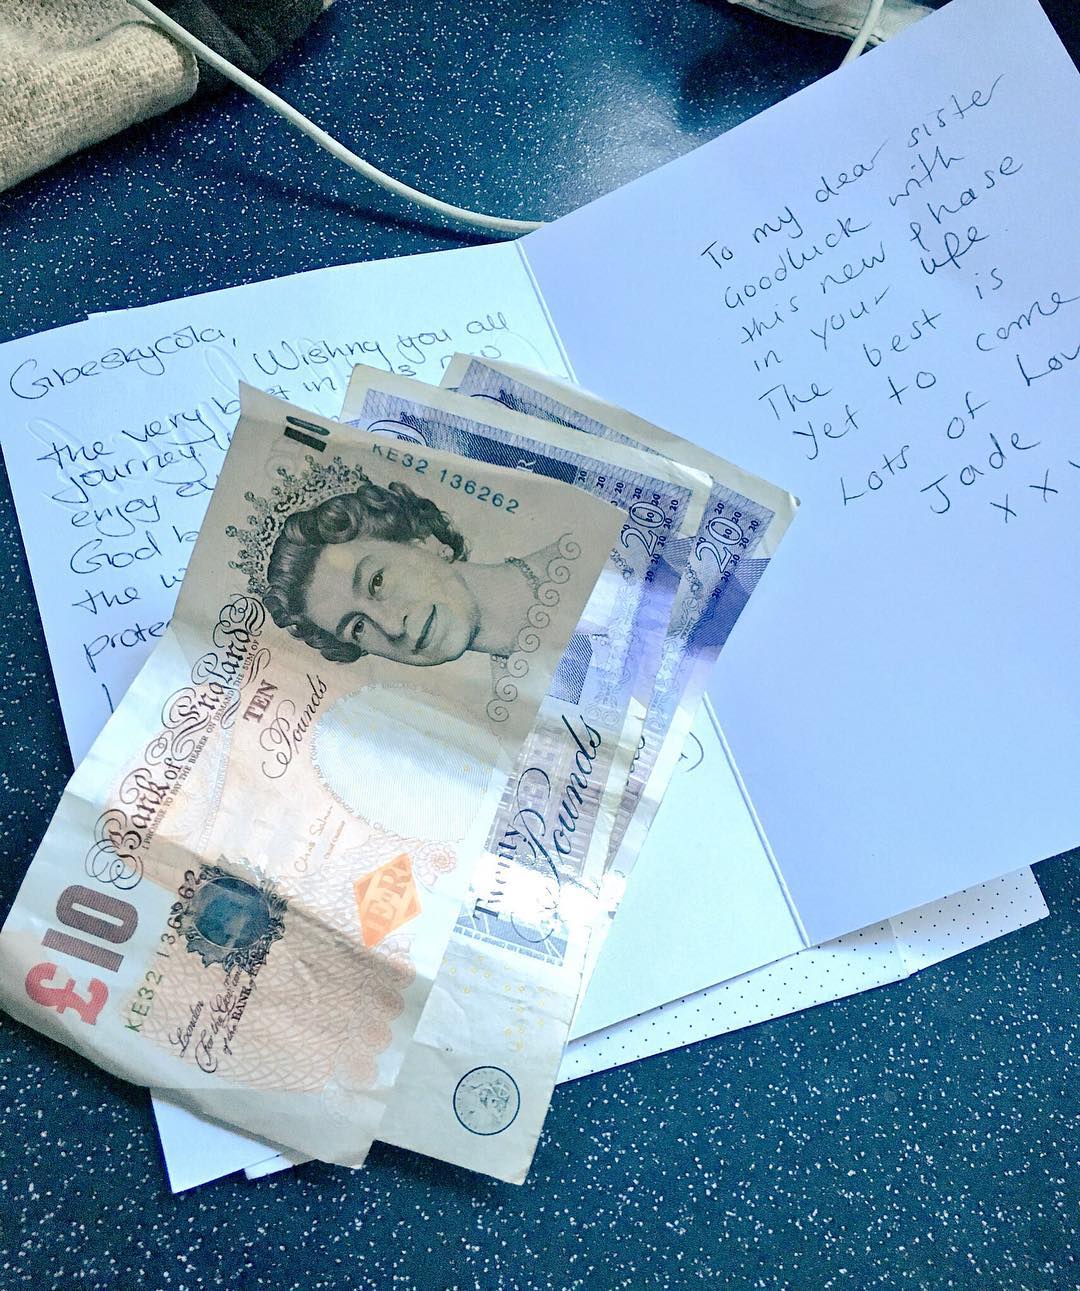 Gbeskycola,
Wishing you all
the very best in this new
journey
enjoy
God b
the w
prote
To my dear sister
Goodluck with
this new phase
in your life
The best is
yet to come
Lots of Lov
Jade
x x x
10
KE32 136262
Bank of England
I PROMISE TO PAY THE BEARER ON DEMAND THE SUM OF
TEN
Pounds
£10
KE32 136262
London
For the Govr and Compa
of the BANK of
E II R
20
20
Twenty
Pounds